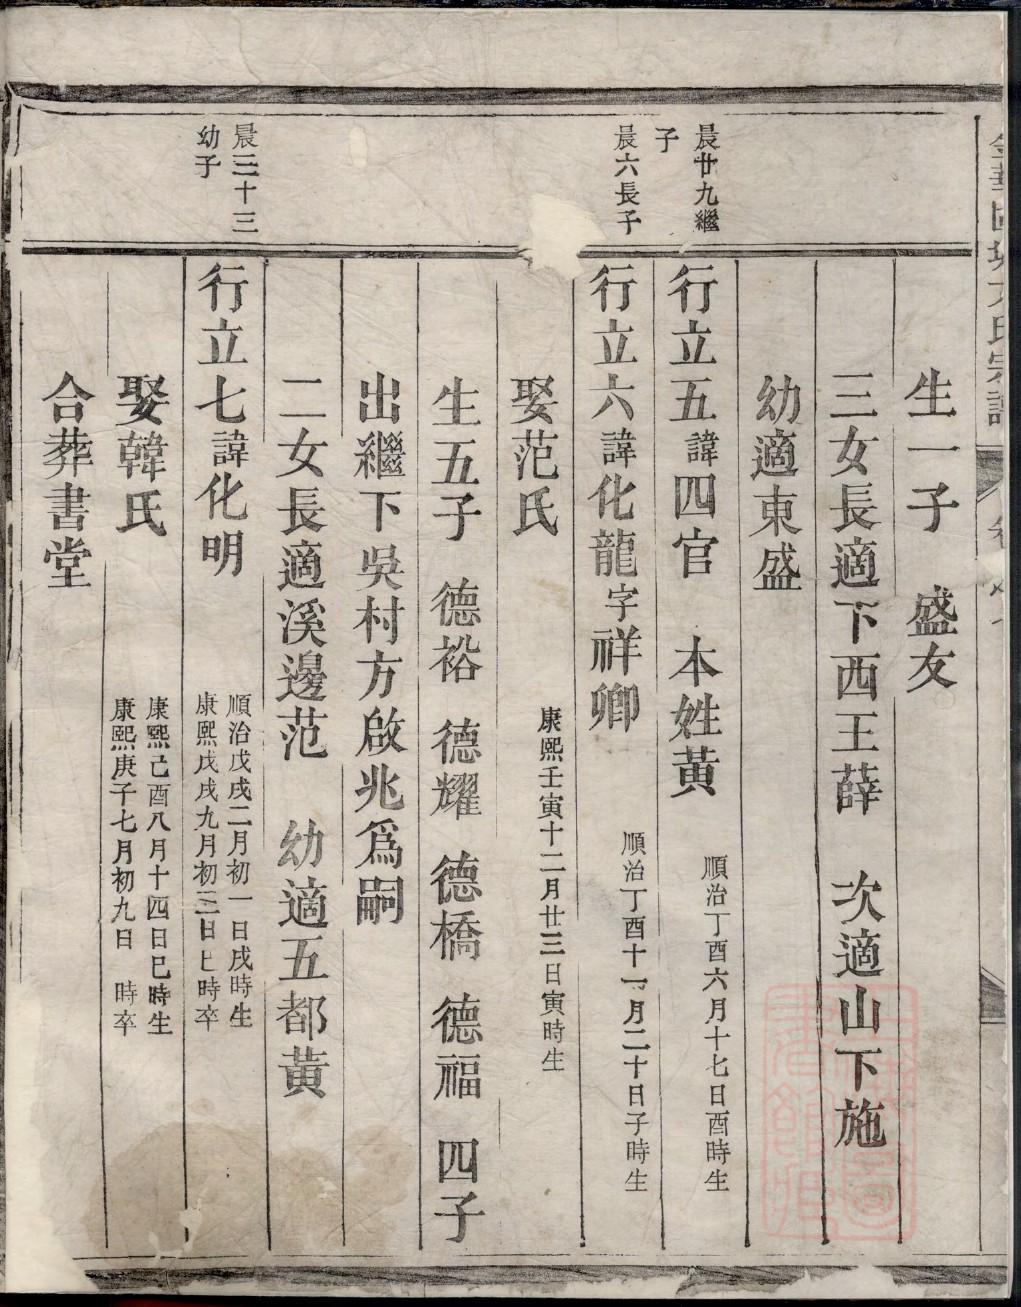 生一子 盛友
三女長適下西王薛 次適山下施
幼適東盛
晨廿九繼
子
行立五諱四官 本姓黃 順治丁酉六月十七日酉時生
晨六長子
行立六諱化龍字祥卿 順治丁酉十一月二十日子時生
娶范氏 康熙壬寅十二月廿三日寅時生
生五子 德裕 德耀 德橋 德福 四子
出繼下吳村方啟兆爲嗣
二女長適溪邊范 幼適五都黃
晨三十三
幼子
行立七諱化明 順治戊戌二月初一日戌時生
康熙戊戌九月初三日巳時卒
娶韓氏 康熙己酉八月十四日巳時生
康熙庚子七月初九日 時卒
合葬書堂